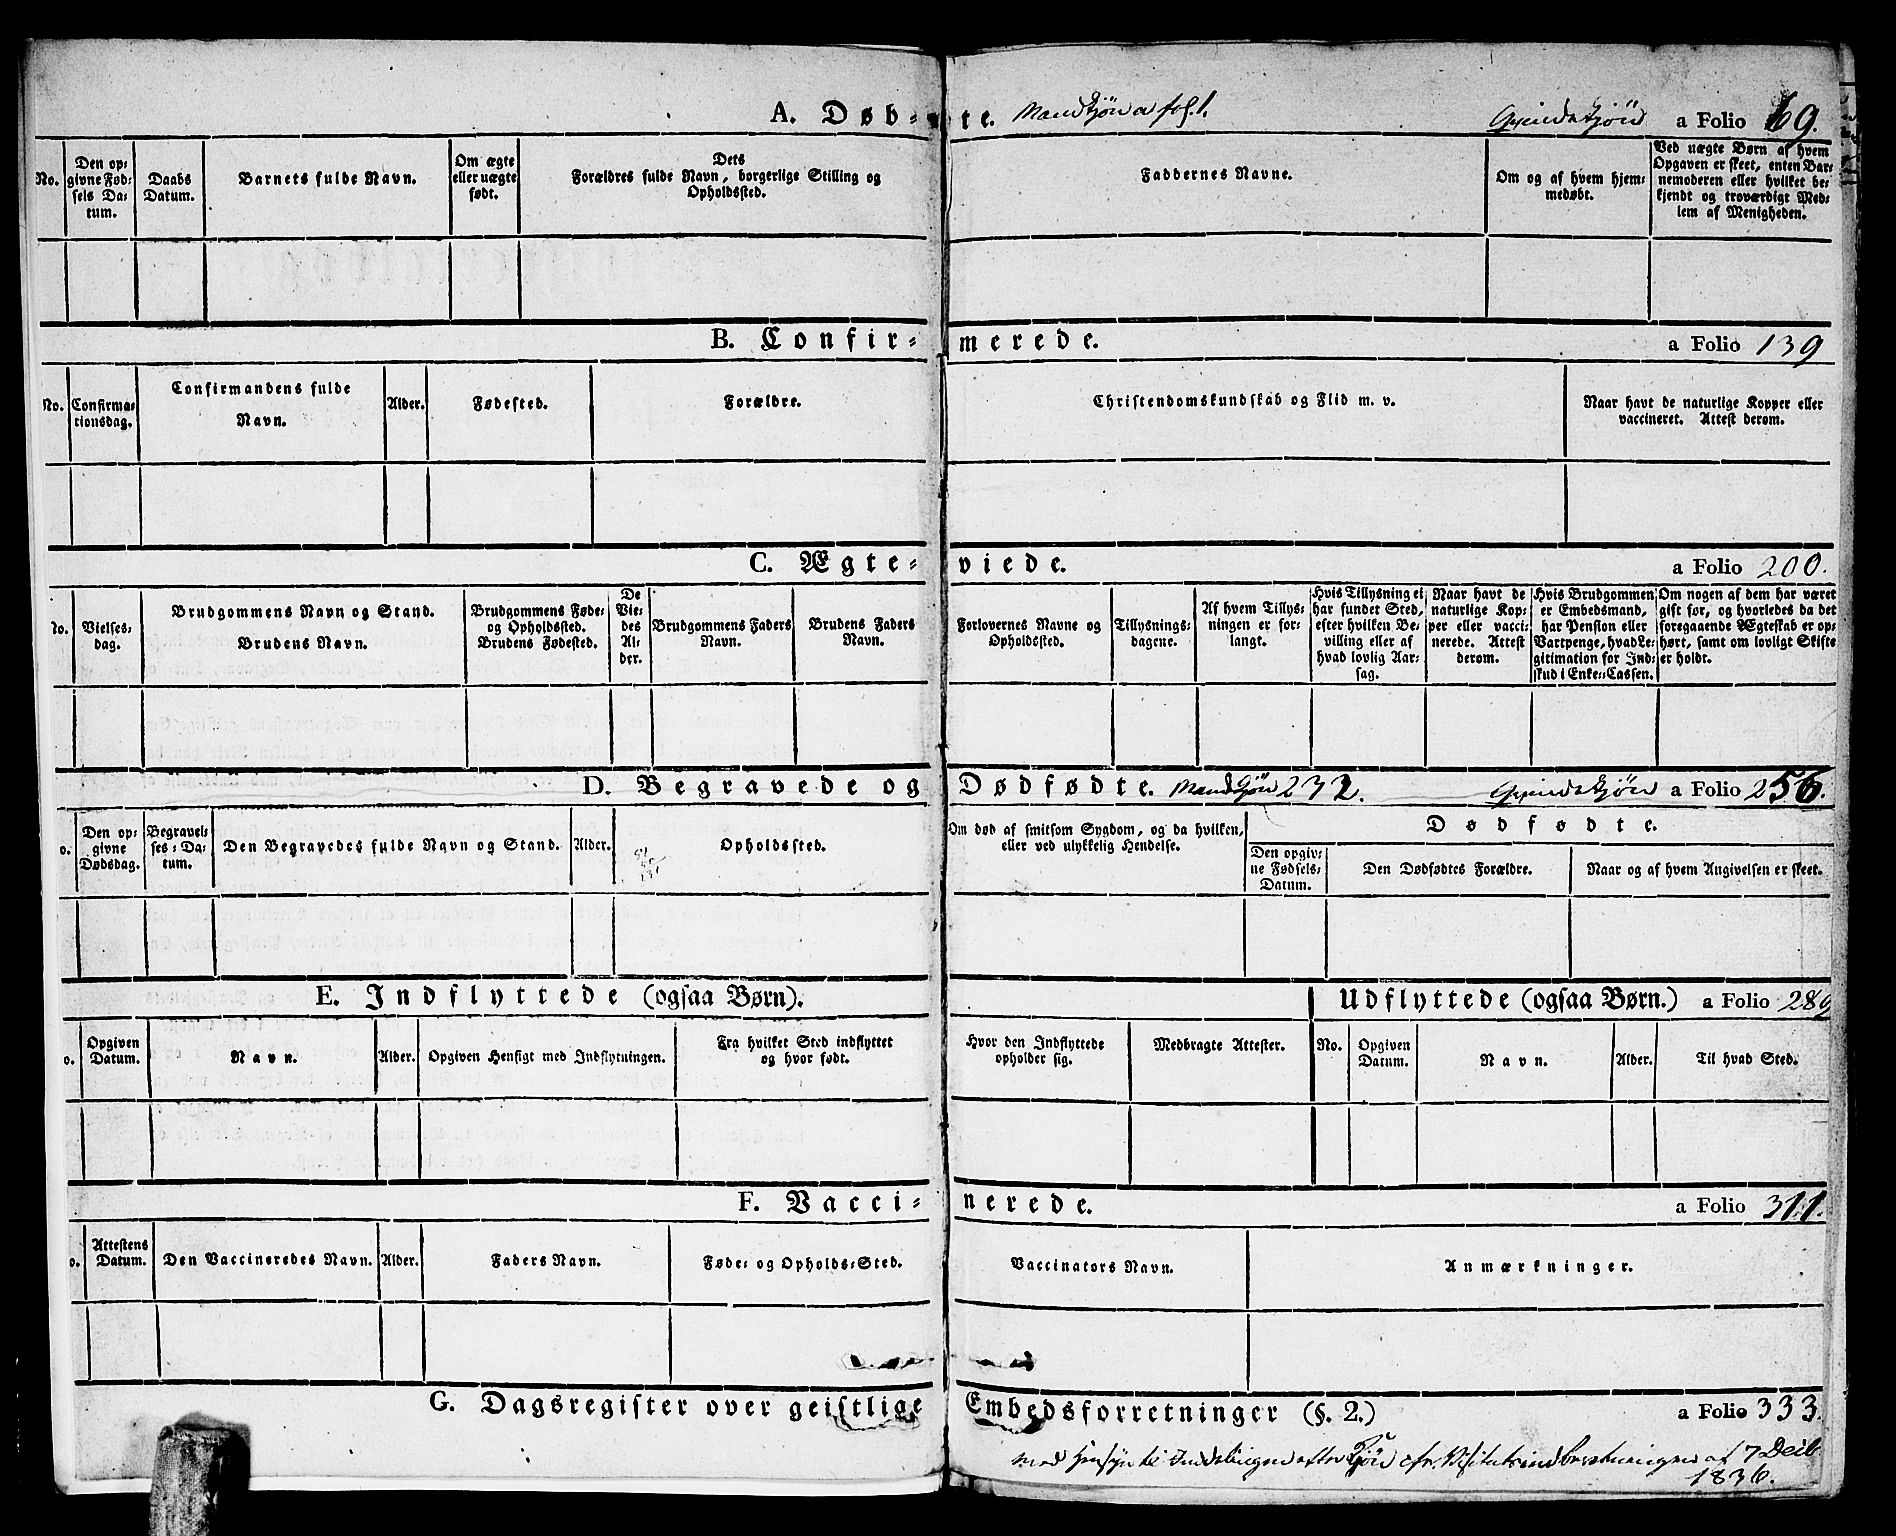 A. Døb- te. Mandkjøn a fol. 1. Qvindekjøn a Folio 69.
No.
Den op-
givne Fød-
sels Da-
tum.
Daabs
Datum.
Barnets fulde Navn.
Om ægte
eller uægte
født.
Dets
Forældres fulde Navn, borgerlige Stilling og
Opholdssted.
Faddernes Navne.
Om og af hvem hjem-
medøbt.
Ved uægte Børn af hvem
Opgaven er skeet, enten Bar-
nemoderen eller hvilket be-
kjendt og troværdigt Med-
lem af Menigheden.
B. Confir- merede. a Folio 139
No.
Confirma-
tionsdag.
Confirmandens fulde
Navn.
Alder.
Fødested.
Forældre.
Christendomskundskab og Flid m. v.
Naar havt de naturlige Kopper eller
vaccineret. Attest derom.
C. Ægte- viede. a Folio 200.
No.
Vielses-
dag.
Brudgommens Navn og Stand.
Brudens Navn.
Brudgommens Føde-
og Opholdssted.
Brudens Fødested.
De
Vie-
des
Al-
der.
Brudgommens Faders
Navn.
Brudens Faders
Navn.
Forlovernes Navne og
Opholdssted.
Tillysnings-
dagene.
Af hvem Tillys-
ningen er for-
langt.
Hvis Tillysning ei
har fundet Sted,
efter hvilken Be-
villing eller af
hvad lovlig Aar-
sag.
Naar havt de
naturlige Kop-
per eller vacci-
nerede. Attest
derom.
Hvis Brudgommen
er Embedsmand,
har Pension eller
Vartpenge, hvad Le-
gitimation for Ind-
skud i Enke-Cassen.
Om nogen af dem har været
gift før, og hvorledes da det
foregaaende Ægteskab er op-
hørt, samt om lovligt Skifte
er holdt.
D. Begravede og Dødfødte. Mandkjøn 232. Qvindekjøn a Folio 256.
o.
Den op-
givne
Dødsdag.
Begravel-
ses-Da-
tum.
Den Begravedes fulde Navn og Stand.
Alder.
Opholdssted.
Om død af smitsom Sygdom, og da hvilken,
eller ved ulykkelig Hendelse.
Dødfødte.
Den opgiv-
ne Fødsels-
Datum.
Den Dødfødtes Forældre.
Naar og af hvem Angivelsen er skeet.
E. Indflyttede (ogsaa Børn). Udflyttede (ogsaa Børn.) a Folio 289
o.
Opgiven
Datum.
Navn.
Alder.
Opgiven Hensigt med Indflytningen.
Fra hvilket Sted indflyttet
og hvor født.
Hvor den Indflyttede
opholder sig.
Medbragte Attester.
No.
Opgiven
Datum.
Navn.
Alder.
Til hvad Sted.
F. Vacci- nerede. a Folio 311.
o.
Attestens
Datum.
Den Vaccineredes Navn.
Alder.
Faders Navn.
Føde- og Opholds-Sted.
Vaccinators Navn.
Anmærkninger.
G. Dagsregister over geistlige Embedsforretninger (§. 2.) a Folio 333.
med Hensyn til Inddelingen efter Kjøn cfr. Visitatsindberetningen af 7 Decb
1836.